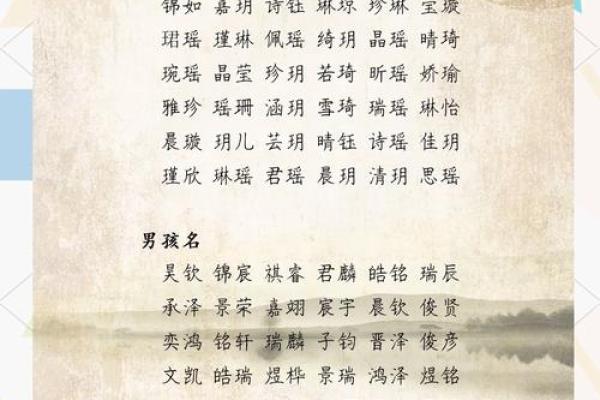 锦如 嘉玥 诗钰 琳琼 珍琳 莹璇
珺瑶 瑾琳 佩瑶 绮玥 晶瑶 晴琦
琬瑶 晶莹 珍玥 若琦 昕瑶 娇瑜
雅珍 瑶珊 涵玥 雪琦 瑞瑶 琳怡
晨璇 玥儿 芸玥 晴钰 诗瑶 佳玥
瑾欣 琳瑶 君瑶 晨玥 清玥 思瑶
男孩名
昊钦 锦宸 祺睿 君麟 皓铭 瑞辰
承泽 景荣 嘉翊 宸宇 晨钦 俊贤
奕鸿 铭轩 瑞麟 子钧 晋泽 俊彦
文凯 皓瑞 煜桦 景瑞 鸿泽 煜铭